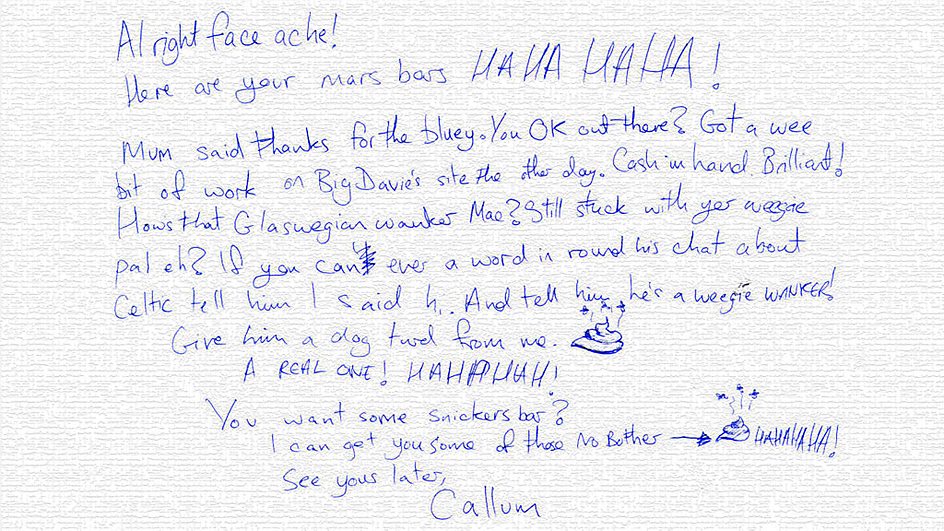 Alright face ache!
Here are your mars bars HAHA HAHA!
Mum said thanks for the bluey. You OK out there? Got a wee
bit of work on Big Davie's site the other day. Cash in hand. Brilliant!
Hows that Glaswegian wanker Mac? Still stuck with yer weegie
pal eh? If you can ever a word in round his chat about
Celtic tell him I said hi. And tell him he's a weegie WANKER!
Give him a dog turd from me.
A REAL ONE! HAHAHAHAH!
You want some snickers bar?
I can get you some of those No Bother → HAHAHAHA!
See yous later,
Callum